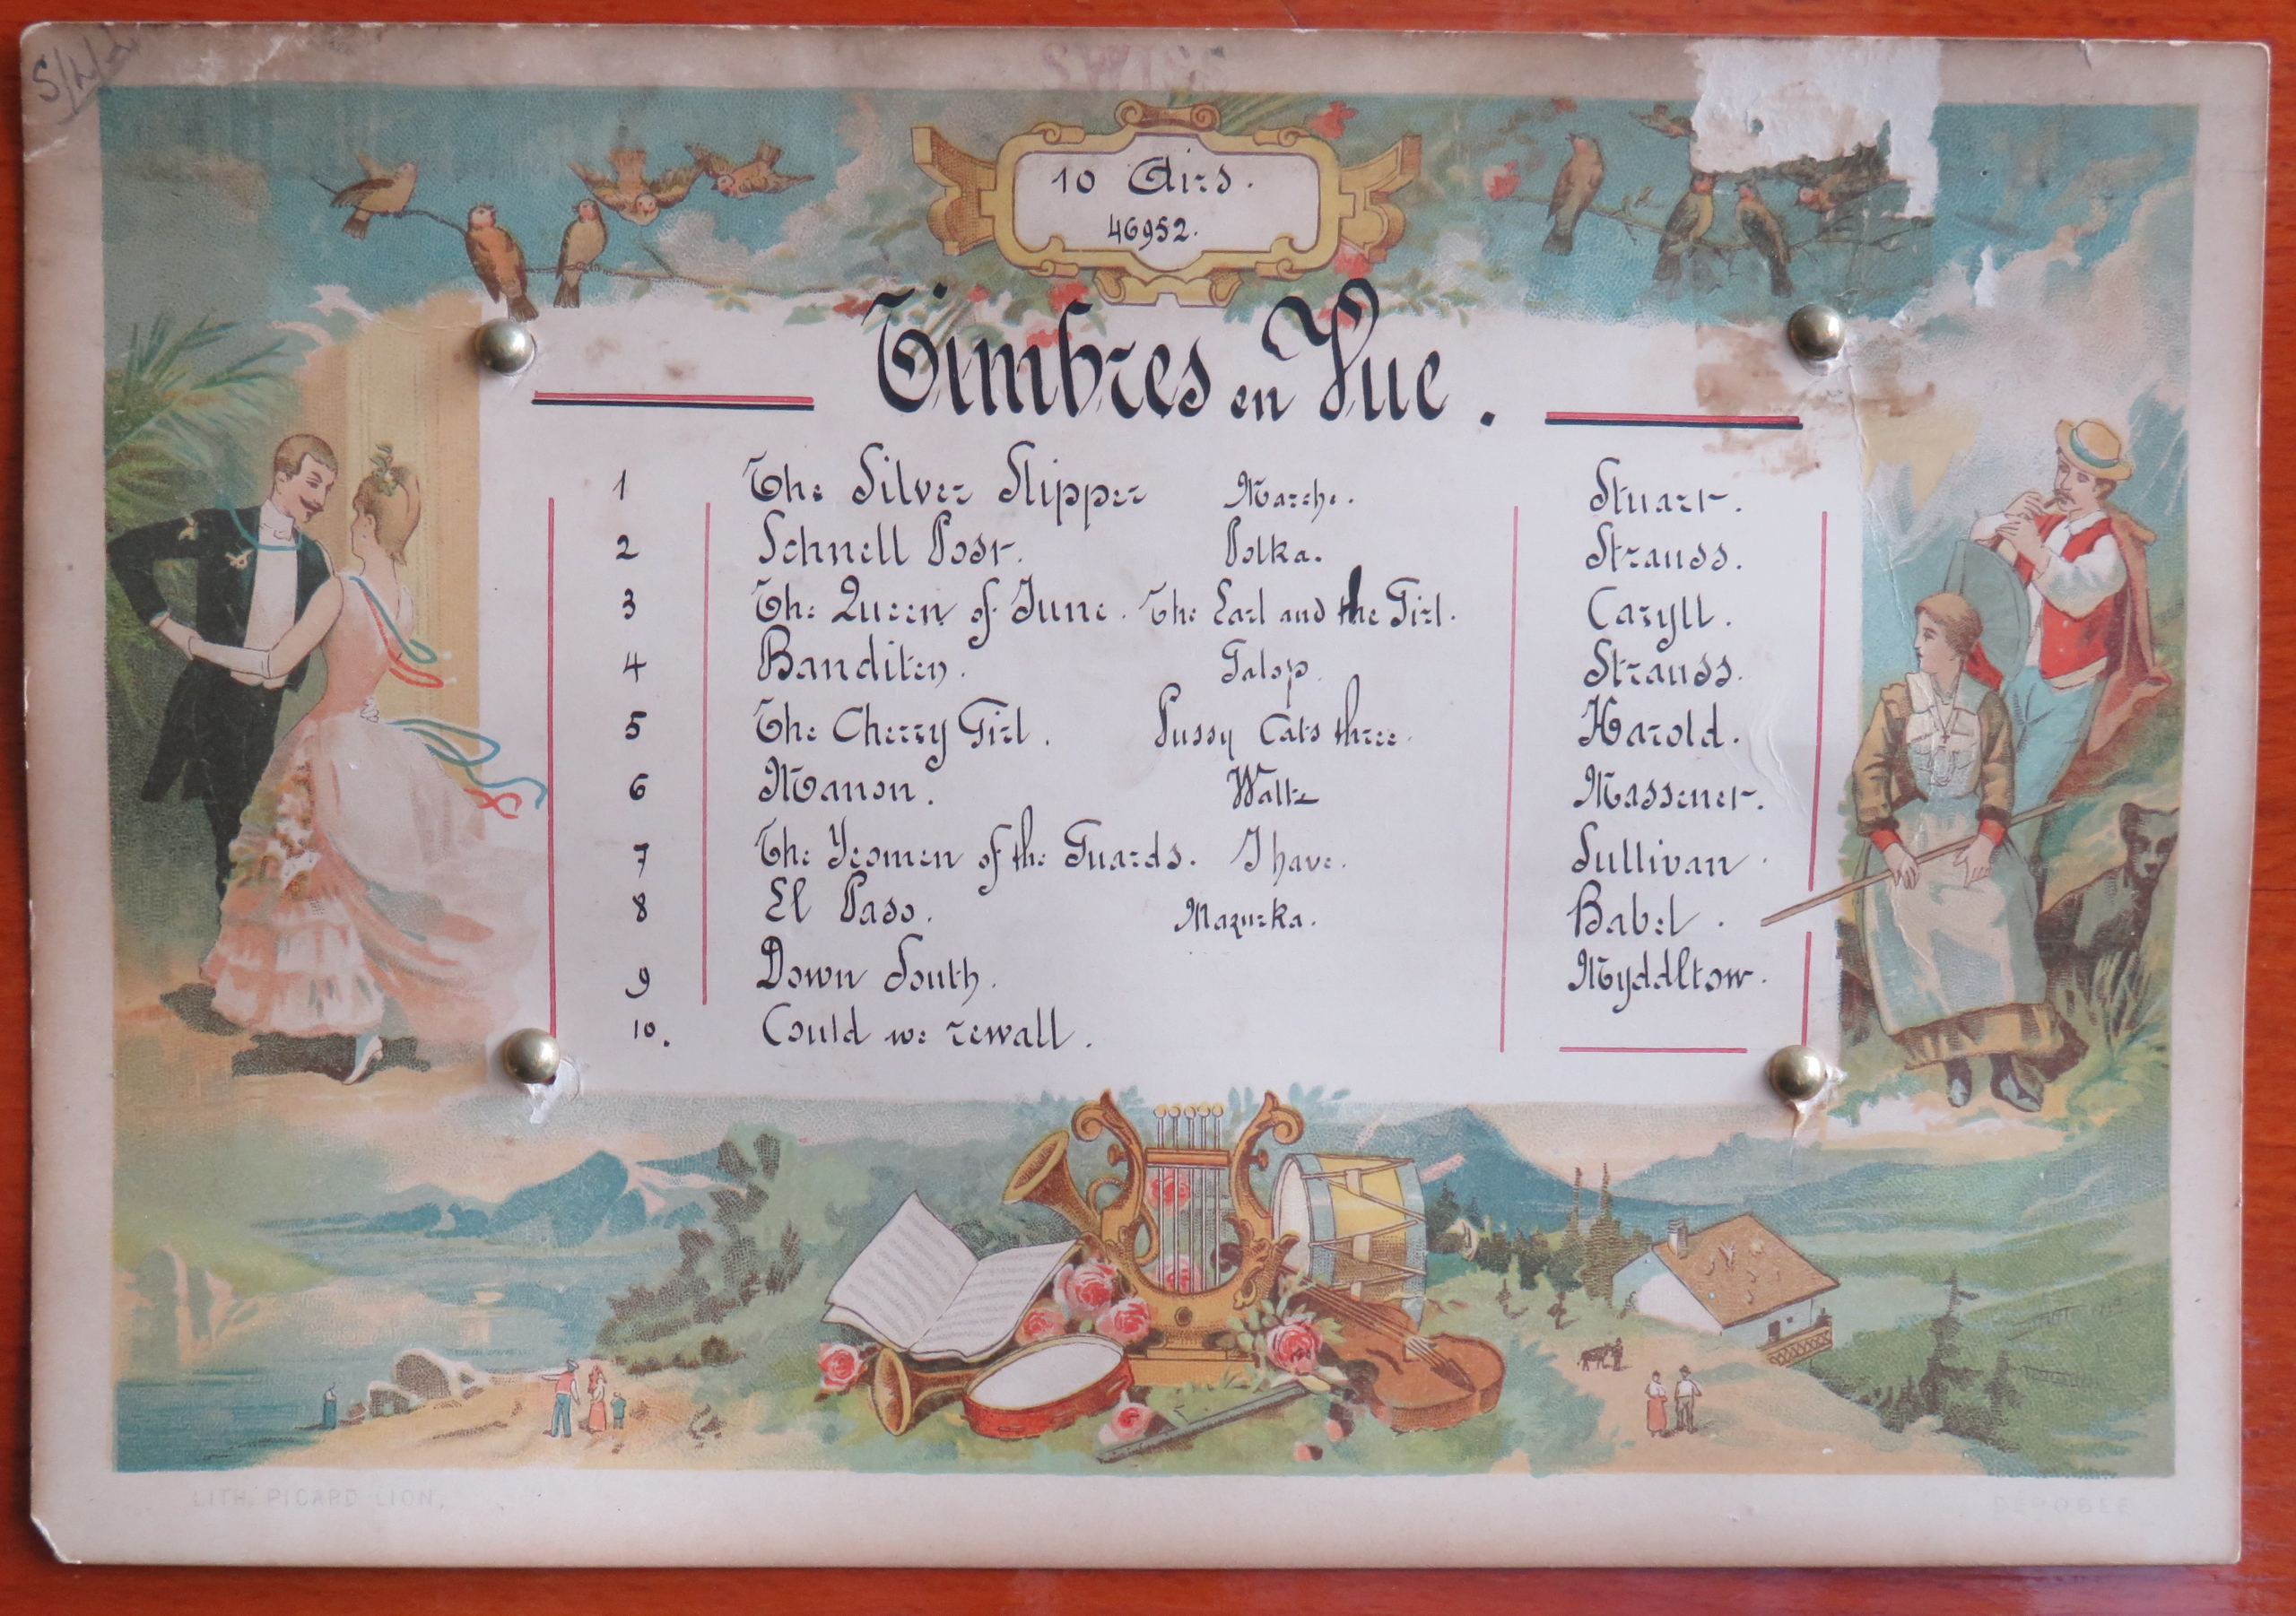 S/4/2
SWISS
10 Airs.
46952.
Timbres en Vue.
1 The Silver Slipper Marche. Stuart.
2 Schnell Post. Polka. Strauss.
3 The Queen of June. The Earl and the Girl. Caryll.
4 Banditen. Galop. Strauss.
5 The Cherry Girl. Pussy Cats three. Harold.
6 Manon. Waltz Massenet.
7 The Yeomen of the Guards. I have. Sullivan.
8 El Paso. Mazurka. Babel.
9 Down South. Myddltow.
10. Could we rewall.
LITH. PICARD LION, DEPOSEE